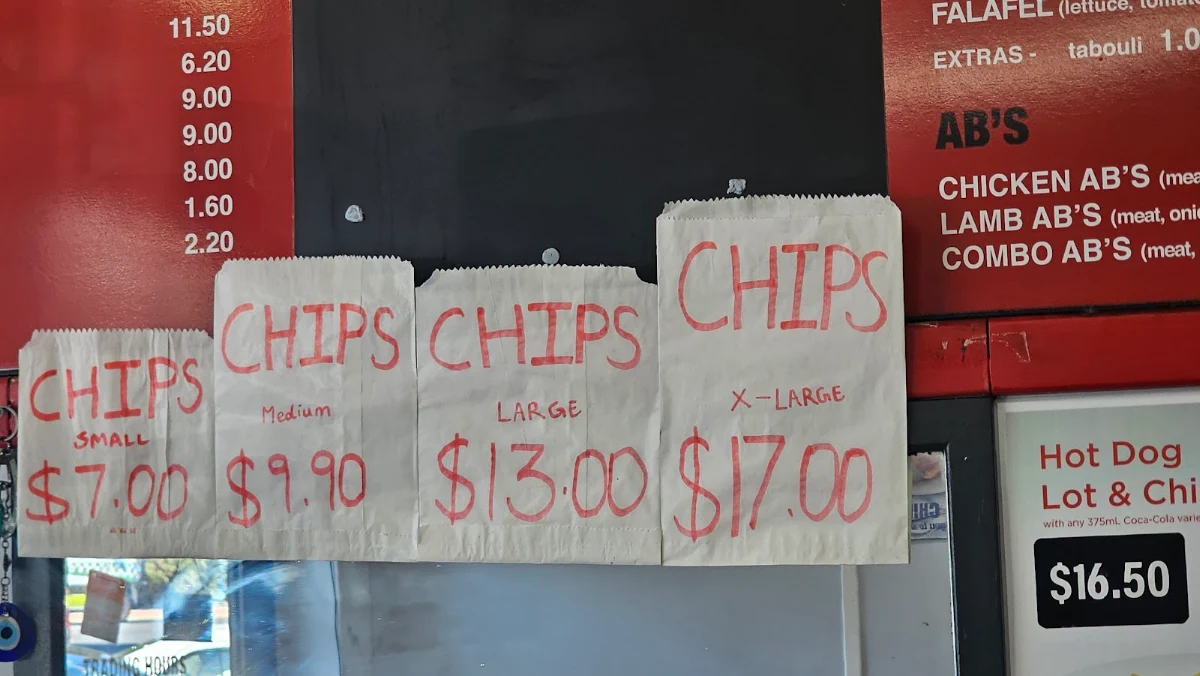 11.50
6.20
9.00
9.00
8.00
1.60
2.20
CHIPS
SMALL
$7.00
CHIPS
Medium
$9.90
CHIPS
LARGE
$13.00
CHIPS
X-LARGE
$17.00
FALAFEL (lettuce,
EXTRAS - tabouli
AB'S
CHICKEN AB'S
LAMB AB'S (meat,
COMBO AB'S (meat,
Hot Dog
Lot & Chi
with any 375mL Coca-Cola
$16.50
TRADING HOURS